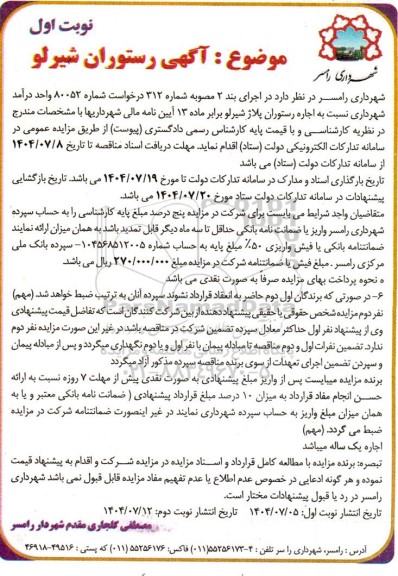 نوبت اول
موضوع : آگهی رستوران شیرلو
شهرداری رامسر
شهرداری رامسر در نظر دارد در اجرای بند ۲ مصوبه شماره ۳۱۲ درخواست شماره ۸۰۰۵۲ واحد درآمد
شهرداری نسبت به اجاره رستوران پلاژ شیرلو برابر ماده ۱۳ آیین نامه مالی شهرداریها با مشخصات مندرج
در نظریه کارشناسی و با قیمت پایه کارشناس رسمی دادگستری (پیوست) از طریق مزایده عمومی در
سامانه تدارکات الکترونیکی دولت (ستاد) اقدام نماید. مهلت دریافت اسناد مناقصه تا تاریخ ۱۴۰۴/۰۷/۸
از سامانه تدارکات دولت (ستاد) می باشد
تاریخ بارگذاری اسناد و مدارک در سامانه تدارکات دولت تا مورخ ۱۴۰۴/۰۷/۱۹ می باشد. تاریخ بازگشایی
پیشنهادات در سامانه تدارکات دولت ستاد مورخ ۱۴۰۴/۰۷/۲۰ می باشد.
متقاضیان واجد شرایط می بایست برای شرکت در مزایده پنج درصد مبلغ پایه کارشناسی را به حساب سپرده
شهرداری رامسر واریز یا ضمانت نامه بانکی حداقل تا سه ماه دیگر قابل تمدید باشد به همان میزان ارائه نمایند
ضمانتنامه بانکی یا فیش واریزی ۵۰٪ مبلغ پایه به حساب شماره ۰۱۰۴۵۶۸۵۱۲۰۰۵ سپرده بانک ملی
مرکزی رامسر . مبلغ فیش یا ضمانتنامه شرکت در مزایده مبلغ ۲۷۰/۰۰۰/۰۰۰ ریال می باشد.
ه نحوه پرداخت بهای مزایده صرفا به صورت نقدی می باشد
۶- در صورتی که برندگان اول دوم حاضر به انعقاد قرارداد نشوند سپرده آنان به ترتیب ضبط خواهد شد. (مهم)
نفر دوم مزایده شخص حقوقی یا حقیقی پیشنهاد دهنده از بین شرکت کنندگان است که تفاضل قیمت پیشنهادی
وی از پیشنهاد نفر اول حداکثر معادل سپرده تضمین شرکت در مناقصه باشد در غیر این صورت مزایده نفر دوم
ندارد. تضمین نفرات اول و دوم مناقصه تا مبادله پیمان با نفر اول و یا دوم نگهداری میگردد و پس از مبادله پیمان
و سپردن تضمین اجرای تعهدات از سوی برنده مناقصه سپرده مذکور آزاد میگردد
برنده مزایده میبایست پس از واریز مبلغ پیشنهادی به صورت نقدی پیش از مهلت ۷ روزه نسبت به ارائه
حسن انجام مفاد قرارداد به میزان ۱۰ درصد مبلغ قرارداد پیشنهادی ( ضمانت نامه بانکی معتبر و یا به
همان میزان مبلغ واریز به حساب سپرده شهرداری نمایند در غیر اینصورت ضمانتنامه شرکت در مزایده
ضبط می گردد. (مهم)
اجاره یک ساله میباشد
تبصره: برنده مزایده با مطالعه کامل قرارداد و اسناد مزایده در مزایده شرکت و اقدام به پیشنهاد قیمت
نموده و هر گونه ادعایی در خصوص عدم اطلاع یا عدم تفهیم مفاد مزایده قابل قبول نمی باشد شهرداری
رامسر در رد یا قبول پیشنهادات مختار است.
تاریخ انتشار نوبت اول: ۱۴۰۴/۰۷/۰۵ تاریخ انتشار نوبت دوم: ۱۴۰۴/۰۷/۱۲
مصطفی گلجاری مقدم شهردار رامسر
آدرس : رامسر، شهرداری را سر تلفن : ۴-۵۵۲۵۶۱۷۳(۰۱۱) فاکس: ۵۵۲۵۶۱۷۶ (۰۱۱) کد پستی : ۴۹۵۱۶-۴۶۹۱۸